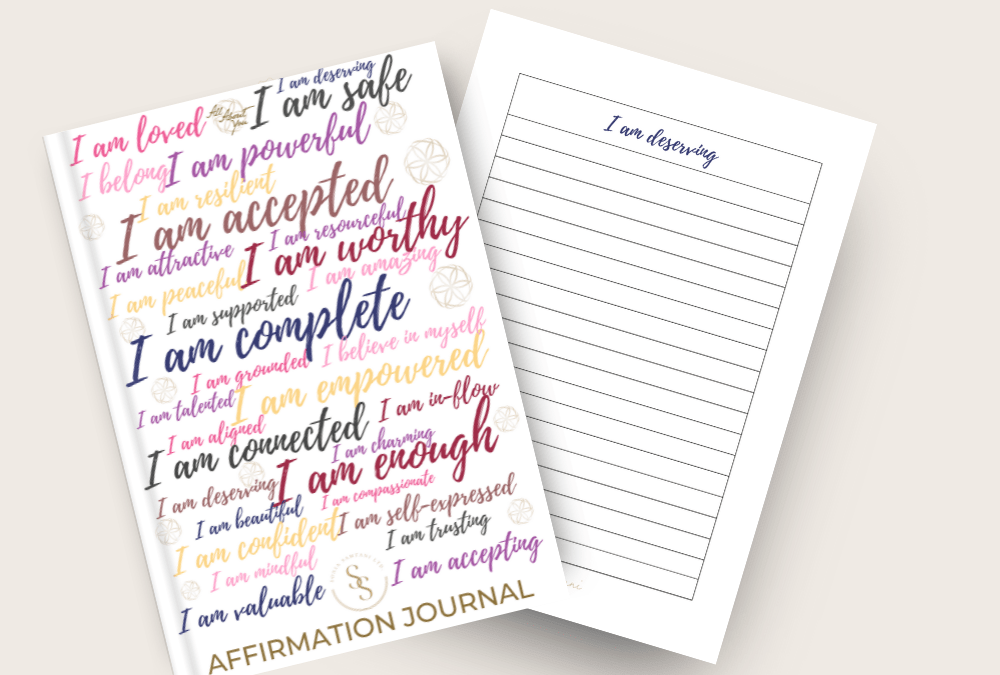 I am deserving
I am safe
I am loved
All About You
I am powerful
I belong
I am resilient
I am accepted
I am resourceful
I am worthy
I am attractive
I am amazing
I am peaceful
I am supported
I am complete
I believe in myself
I am grounded
I am empowered
I am talented
I am in-flow
I am aligned
I am connected
I am charming
I am enough
I am deserving
I am compassionate
I am beautiful
I am self-expressed
I am confident
I am trusting
I am mindful
I am accepting
SS
I am valuable
AFFIRMATION JOURNAL
I am deserving